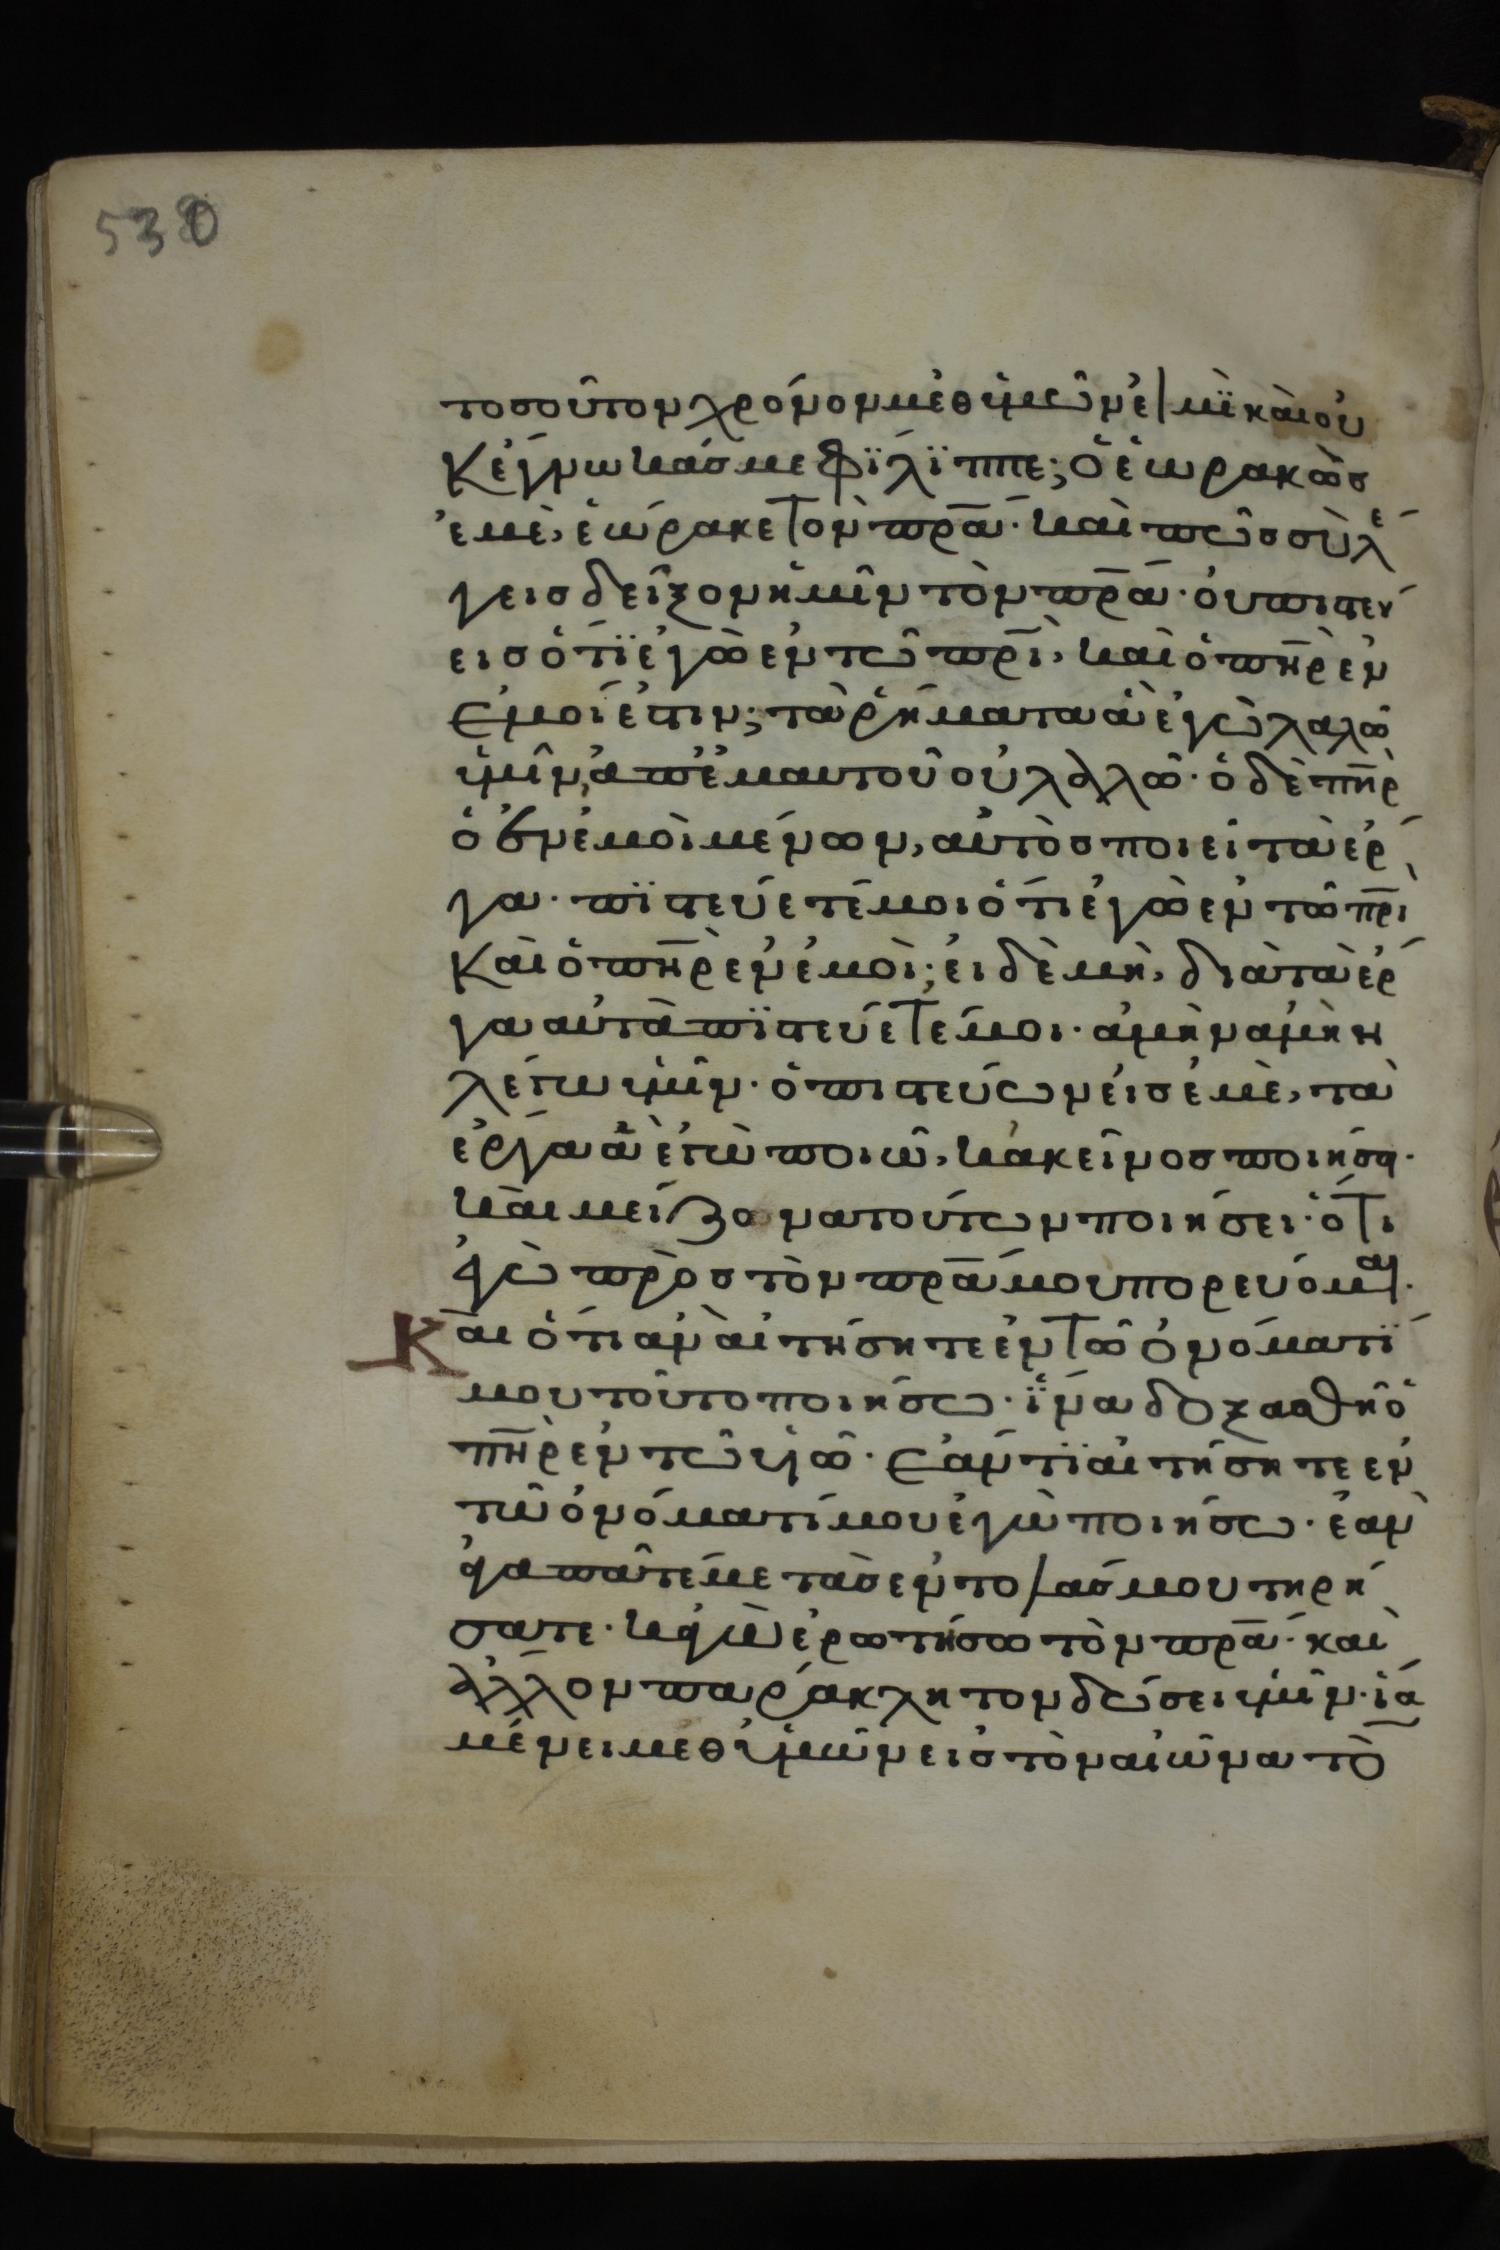 530
τοσοῦτον χρόνον μεθ ὑμῶν εἰμϊ καὶ οὐ
κ ἔγνωκάσ με φϊλϊππε; ὁ ἑωρακὼσ
ἐμὲ, ἑώρακε τὸν πρ̅α̅· καὶ πῶσ σὺ λέ
γεισ δεῖξον ἡμῖν τὸν πρ̅α̅· οὐ πιστεύ
εισ ὅτϊ ἐγὼ ἐν τῶ πρ̅ι̅, καὶ ὁ πη̅ρ̅ ἐν
ἐμοί ἐστιν; τὰ ῥήματα ἃ ἐγὼ λαλῶ
ὑμῖν, ἀπ ἐμαυτοῦ οὐ λαλῶ· ὁ δὲ πη̅ρ̅
ὁ ἐν ἐμοὶ μένων, αὐτὸσ ποιεῖ τὰ ἔρ
γα· πϊστεύετέ μοι ὅτι ἐγὼ ἐν τῶ πρ̅ι̅
καὶ ὁ πη̅ρ̅ ἐν ἐμοὶ; εἰ δὲ μὴ, διὰ τὰ ἔρ
γα αὐτὰ πϊστεύετέ μοι· ἀμὴν ἀμὴν
λέγω ὑμῖν· ὁ πιστεύων εἰσ ἐμὲ, τὰ
ἔργα ἃ ἐγὼ ποιῶ, κἀκεῖνοσ ποιήσει·
καὶ μείζονα τούτων ποιήσει· ὅτι
ἐγὼ πρὸσ τὸν πρ̅α̅ μου πορεύομαι·
Καὶ ὅτι ἀν αἰτήσητε ἐν τῶ ὀνόματϊ
μου τοῦτο ποιήσω· ἵνα δοξασθῆ ὁ
πη̅ρ̅ ἐν τῶ υἱῶ· ἐάν τϊ αἰτήσητε ἐν
τῶ ὀνόματί μου ἐγὼ ποιήσω· ἐὰν
ἀγαπᾶτέ με τὰσ ἐντολάσ μου τηρή
σατε· κἀγὼ ἐρωτήσω τὸν πρ̅α̅· καὶ
ἄλλον παράκλητον δώσει ὑμῖν· ἵα
μένει μεθ ὑμῶν εἰσ τὸν αἰῶνα τὸ